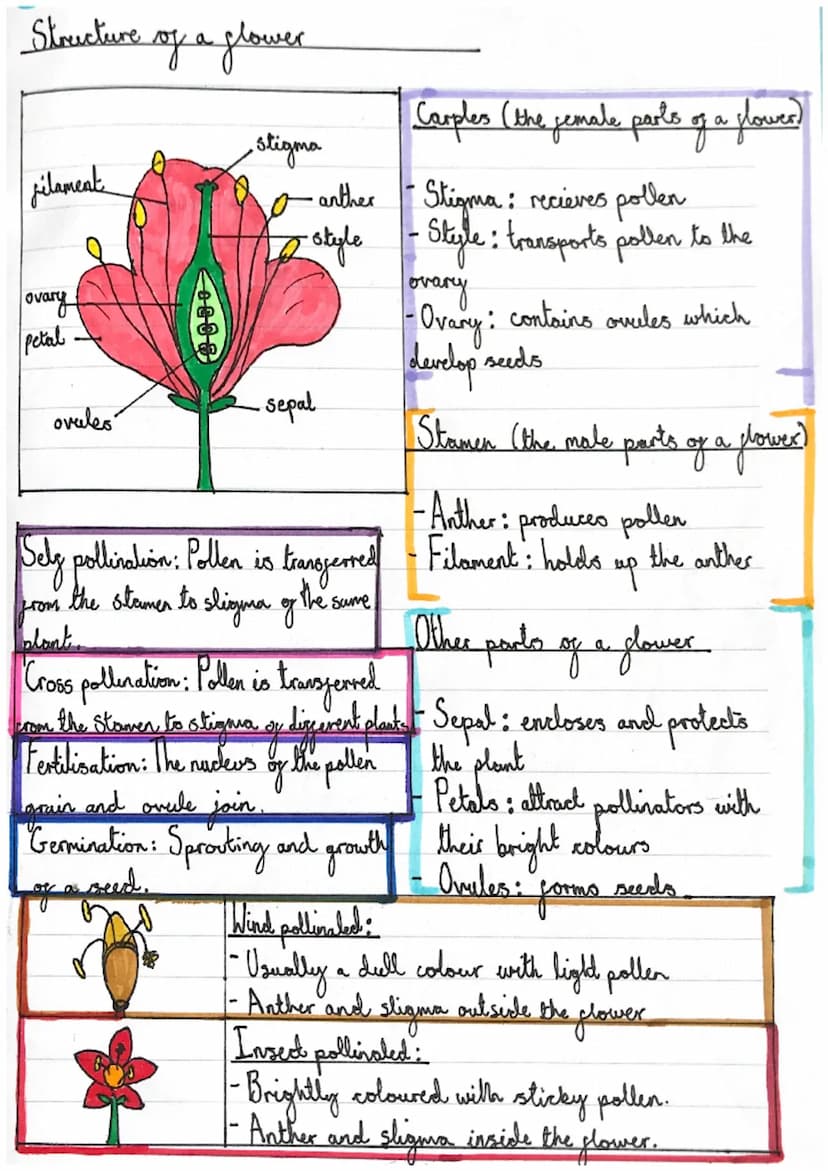 Structure of a flower
stigma
filament
anther
style
ovary
petal
sepal
ovules
Carples (the female parts of a flower)
- Stigma : recieves pollen
- Style : transports pollen to the
ovary
- Ovary : contains ovules which
develop seeds
Stamen (the male parts of a flower)
- Anther : produces pollen
- Filament : holds up the anther
Self pollination: Pollen is transferred
from the stamen to stigma of the same
plant.
Cross pollination: Pollen is transferred
from the stamen to stigma of different plants
Fertilisation: The nucleus of the pollen
grain and ovule join.
Germination: Sprouting and growth
of a seed.
Other parts of a flower
- Sepal : encloses and protects
the plant
- Petals : attract pollinators with
their bright colours
- Ovules : forms seeds
Wind pollinated:
- Usually a dull colour with light pollen
- Anther and stigma outside the flower
Insect pollinated:
- Brightly coloured with sticky pollen.
- Anther and stigma inside the flower.